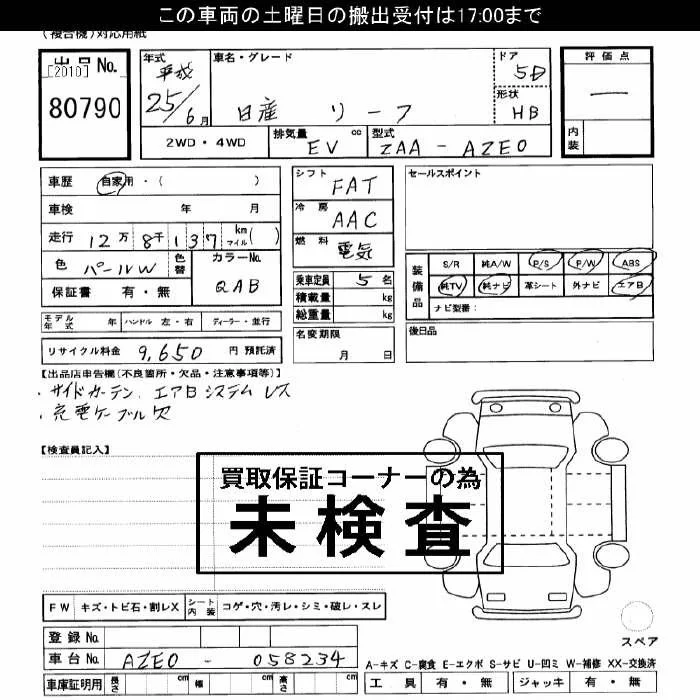 この車両の土曜日の搬出受付は17:00まで
(複合機)対応用紙
出品No.
[2010]
80790
年式
平成
25/6月
車名・グレード
日産 リーフ
ドア
5D
形状
HB
評価点
—
内装
2WD・4WD
排気量
EV cc
型式
ZAA-AZE0
車歴 自家用・( )
車検 年 月
走行 12万8千137 km マイル( )
色 パールW 色替
カラーNo.
QAB
保証書 有・無
モデル年式 年 ハンドル 左・右 ディーラー・並行
リサイクル料金 9,650 円 預託済
シフト
FAT
冷房
AAC
燃料
電気
乗車定員 5名
積載量 kg
総重量 kg
名変期限
月 日
セールスポイント
装備品
S/R 純A/W P/S P/W ABS
純TV 純ナビ 革シート 外ナビ エアB
ナビ型番:
後日品
【出品店申告欄(不良箇所・欠品・注意事項等)】
・サイドカーテン エアBシステムレス
・充電ケーブル欠
【検査員記入】
買取保証コーナーの為
未検査
FW キズ・トビ石・割レX シート内装 コゲ・穴・汚レ・シミ・破レ・スレ
登録No.
車台No. AZE0-058234
車庫証明用 長さ cm 幅 cm 高さ cm
スペア
A-キズ C-腐食 E-エクボ S-サビ U-凹ミ W-補修 XX-交換済
工具 有・無 ジャッキ 有・無